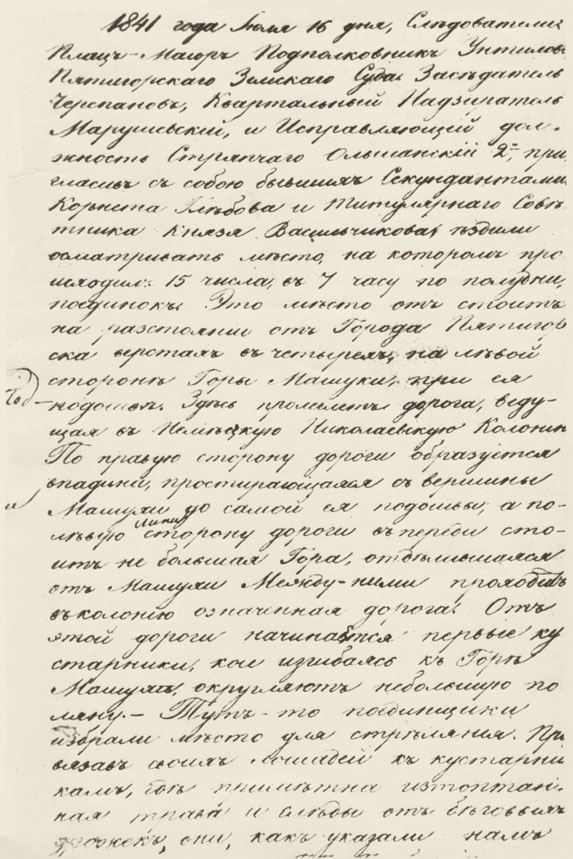 1841 года Июля 16 дня, Слѣдователи
Плацъ-Маіоръ Подполковникъ Унтилов
Пятигорскаго Земскаго Суда Засѣдатель
Черепановъ, Квартальный Надзиратель
Марушевскій, и Исправляющій дол-
жность Стряпчаго Ольшанскій 2й, при
гласивъ съ собою бывшихъ Секундантами
Корнета Глѣбова и Титулярнаго Совѣ
тника Князя Васильчикова, ѣздили
осматривать мѣсто, на которомъ про
исходилъ 15 числа, въ 7 часу по полудни,
поединокъ. Это мѣсто отъ стоитъ
на разстояніи отъ Города Пятигор
ска верстахъ въ четырехъ, на лѣвой
сторонѣ Горы Машухи, при ея
подошвѣ. Здѣсь пролегаетъ дорога, веду-
щая въ Немѣцкую Николаевскую Колонию
По правую сторону дороги образуется
впадина, простирающаяся съ вершины
Машухи до самой ея подошвы; а по
лѣвую сторону дороги въ переди сто-
итъ не большая Гора, отдѣлившаяся
отъ Машухи Между-ними проходитъ
въ колонію означенная дорога. Отъ
этой дороги начинается первые ку
старники, кои изгибаясь къ Горѣ
Машухѣ, округляютъ небольшую по
ляну.- Тутъ-то поединщики
избрали мѣсто для стрѣлянія. При
вязавъ своихъ лошадей къ кустарни
камъ, гдѣ примѣтна изтоптан-
ная трава и слѣды отъ бѣговыхъ
дрожекъ, они, какъ указали намъ